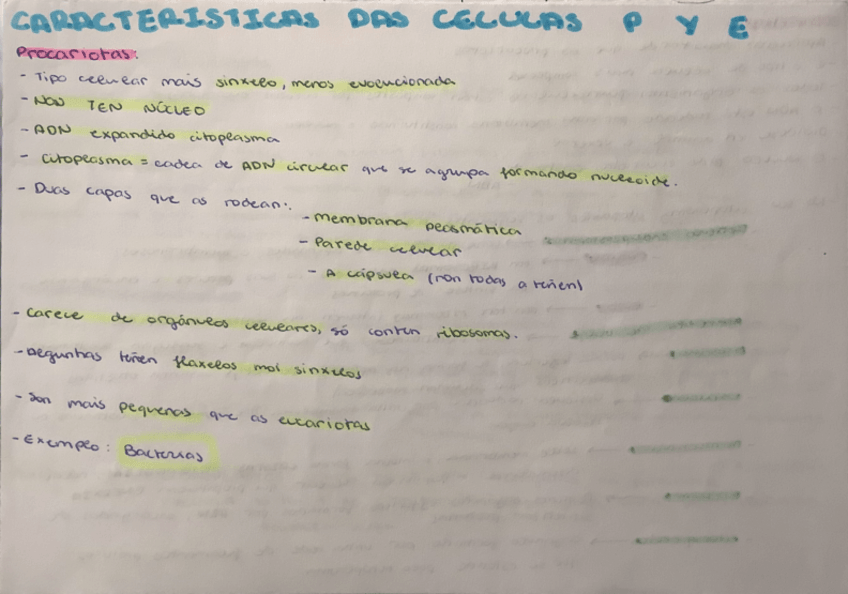 CARACTERISTICAS DAS CELULAS P Y E
Procariotas:
- Tipo celular mais sinxelo, menos evolucionada
- NON TEN NÚCLEO
- ADN expandido citoplasma
- Citoplasma = cadea de ADN circular que se agrupa formando nucleoide.
- Duas capas que as rodean:
- Membrana plasmática
- Parede celular
- A cápsula (non todas a teñen)
- Carece de orgánulos celulares, só conten ribosomas.
- Algunhas teñen flaxelos moi sinxelos
- Son mais pequenas que as eucariotas
- Exemplo: Bacterias